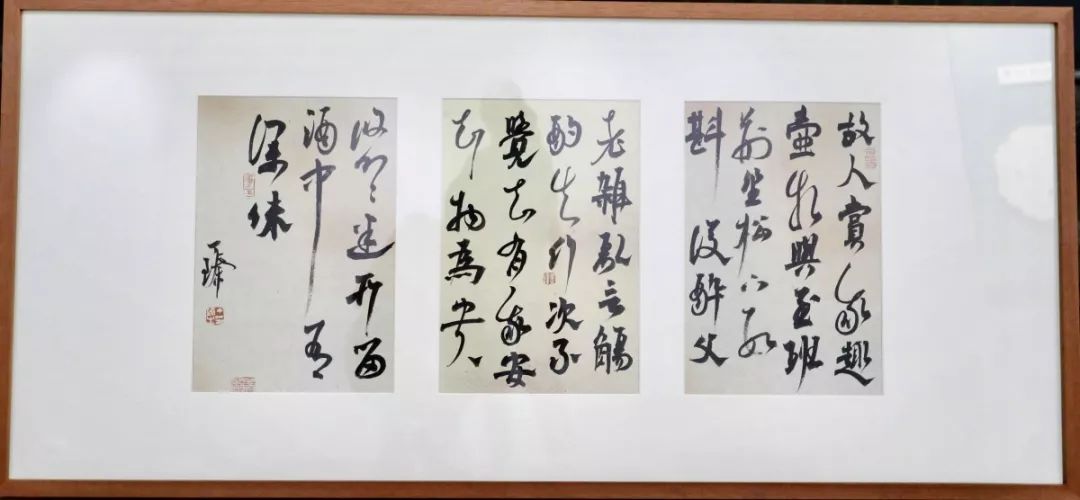 故人賞我趣
壺相與至班
荊坐松下數
斟復醉父
老雜亂言觴
酌失行次不
覺知有我安
知物為貴
悠悠迷所留
酒中有
深味